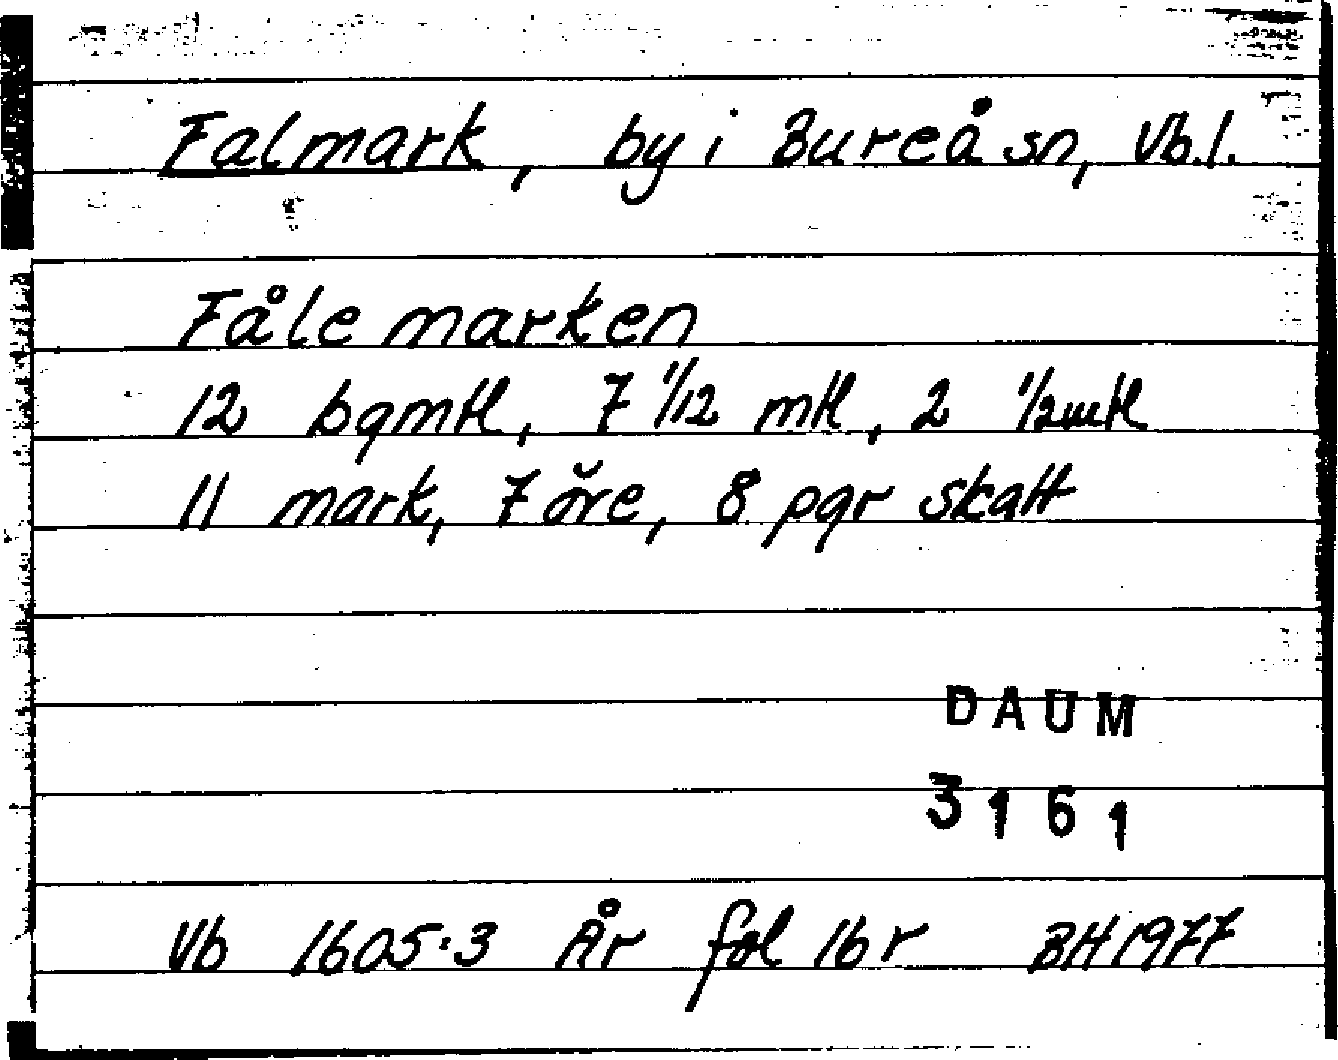 Falmark, by i Bureå sn, Vb.l.
Fåle marken
12 bgmtl, 7 1/12 mtl, 2 1/2 mtl
11 mark, 7 öre, 8 pgr skatt
DAUM
3161
Vb 1605:3 År fol 16r BH 1977